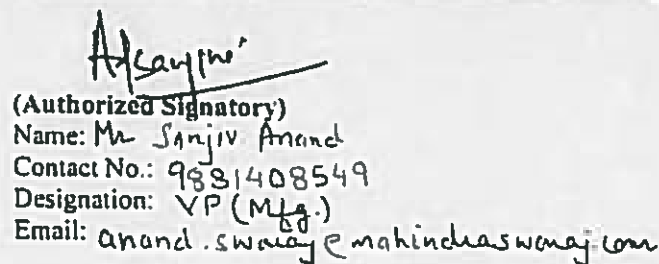 (Authorized Signatory)
Name: Mr Sanjiv Anand
Contact No.: 9831408549
Designation: VP (Mfg.)
Email: anand.swaraj@mahindraswaraj.com